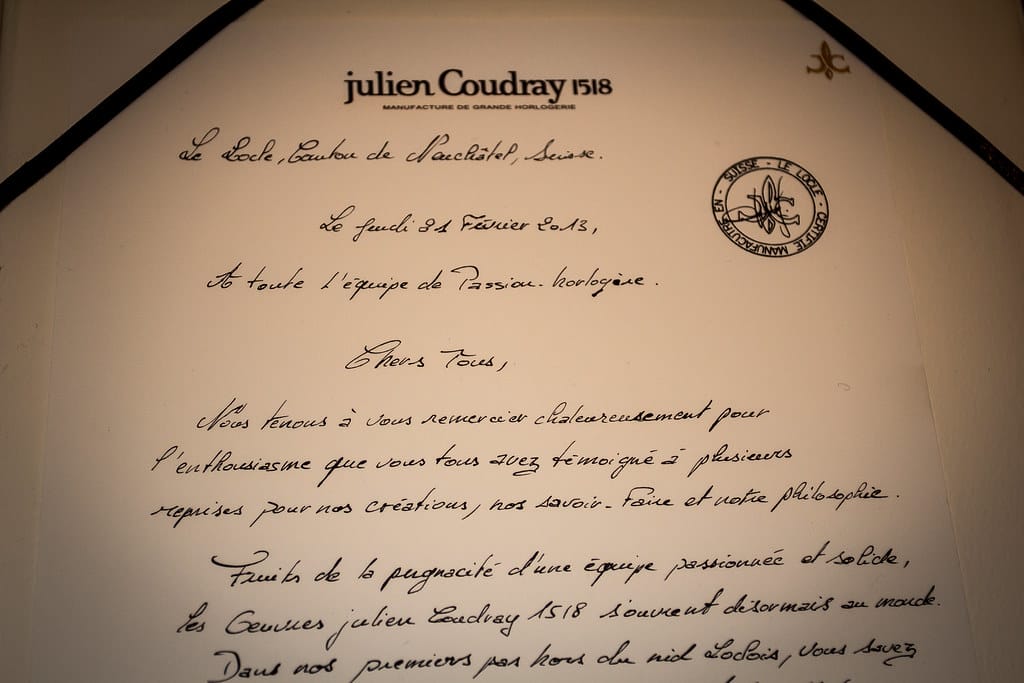 julien Coudray 1518
MANUFACTURE DE GRANDE HORLOGERIE
Le Locle, Canton de Neuchâtel, Suisse.
SUISSE - LE LOCLE - CERTIFIE MANUFACTURE EN -
Le jeudi 21 Février 2013,
A toute l'équipe de Passion-horlogère.
Chers Tous,
Nous tenons à vous remercier chaleureusement pour
l'enthousiasme que vous tous avez témoigné à plusieurs
reprises pour nos créations, nos savoir-faire et notre philosophie.
Fruits de la pugnacité d'une équipe passionnée et solide,
les Oeuvres julien Coudray 1518 s'ouvrent désormais au monde.
Dans nos premiers pas hors du nid Loclois, vous avez